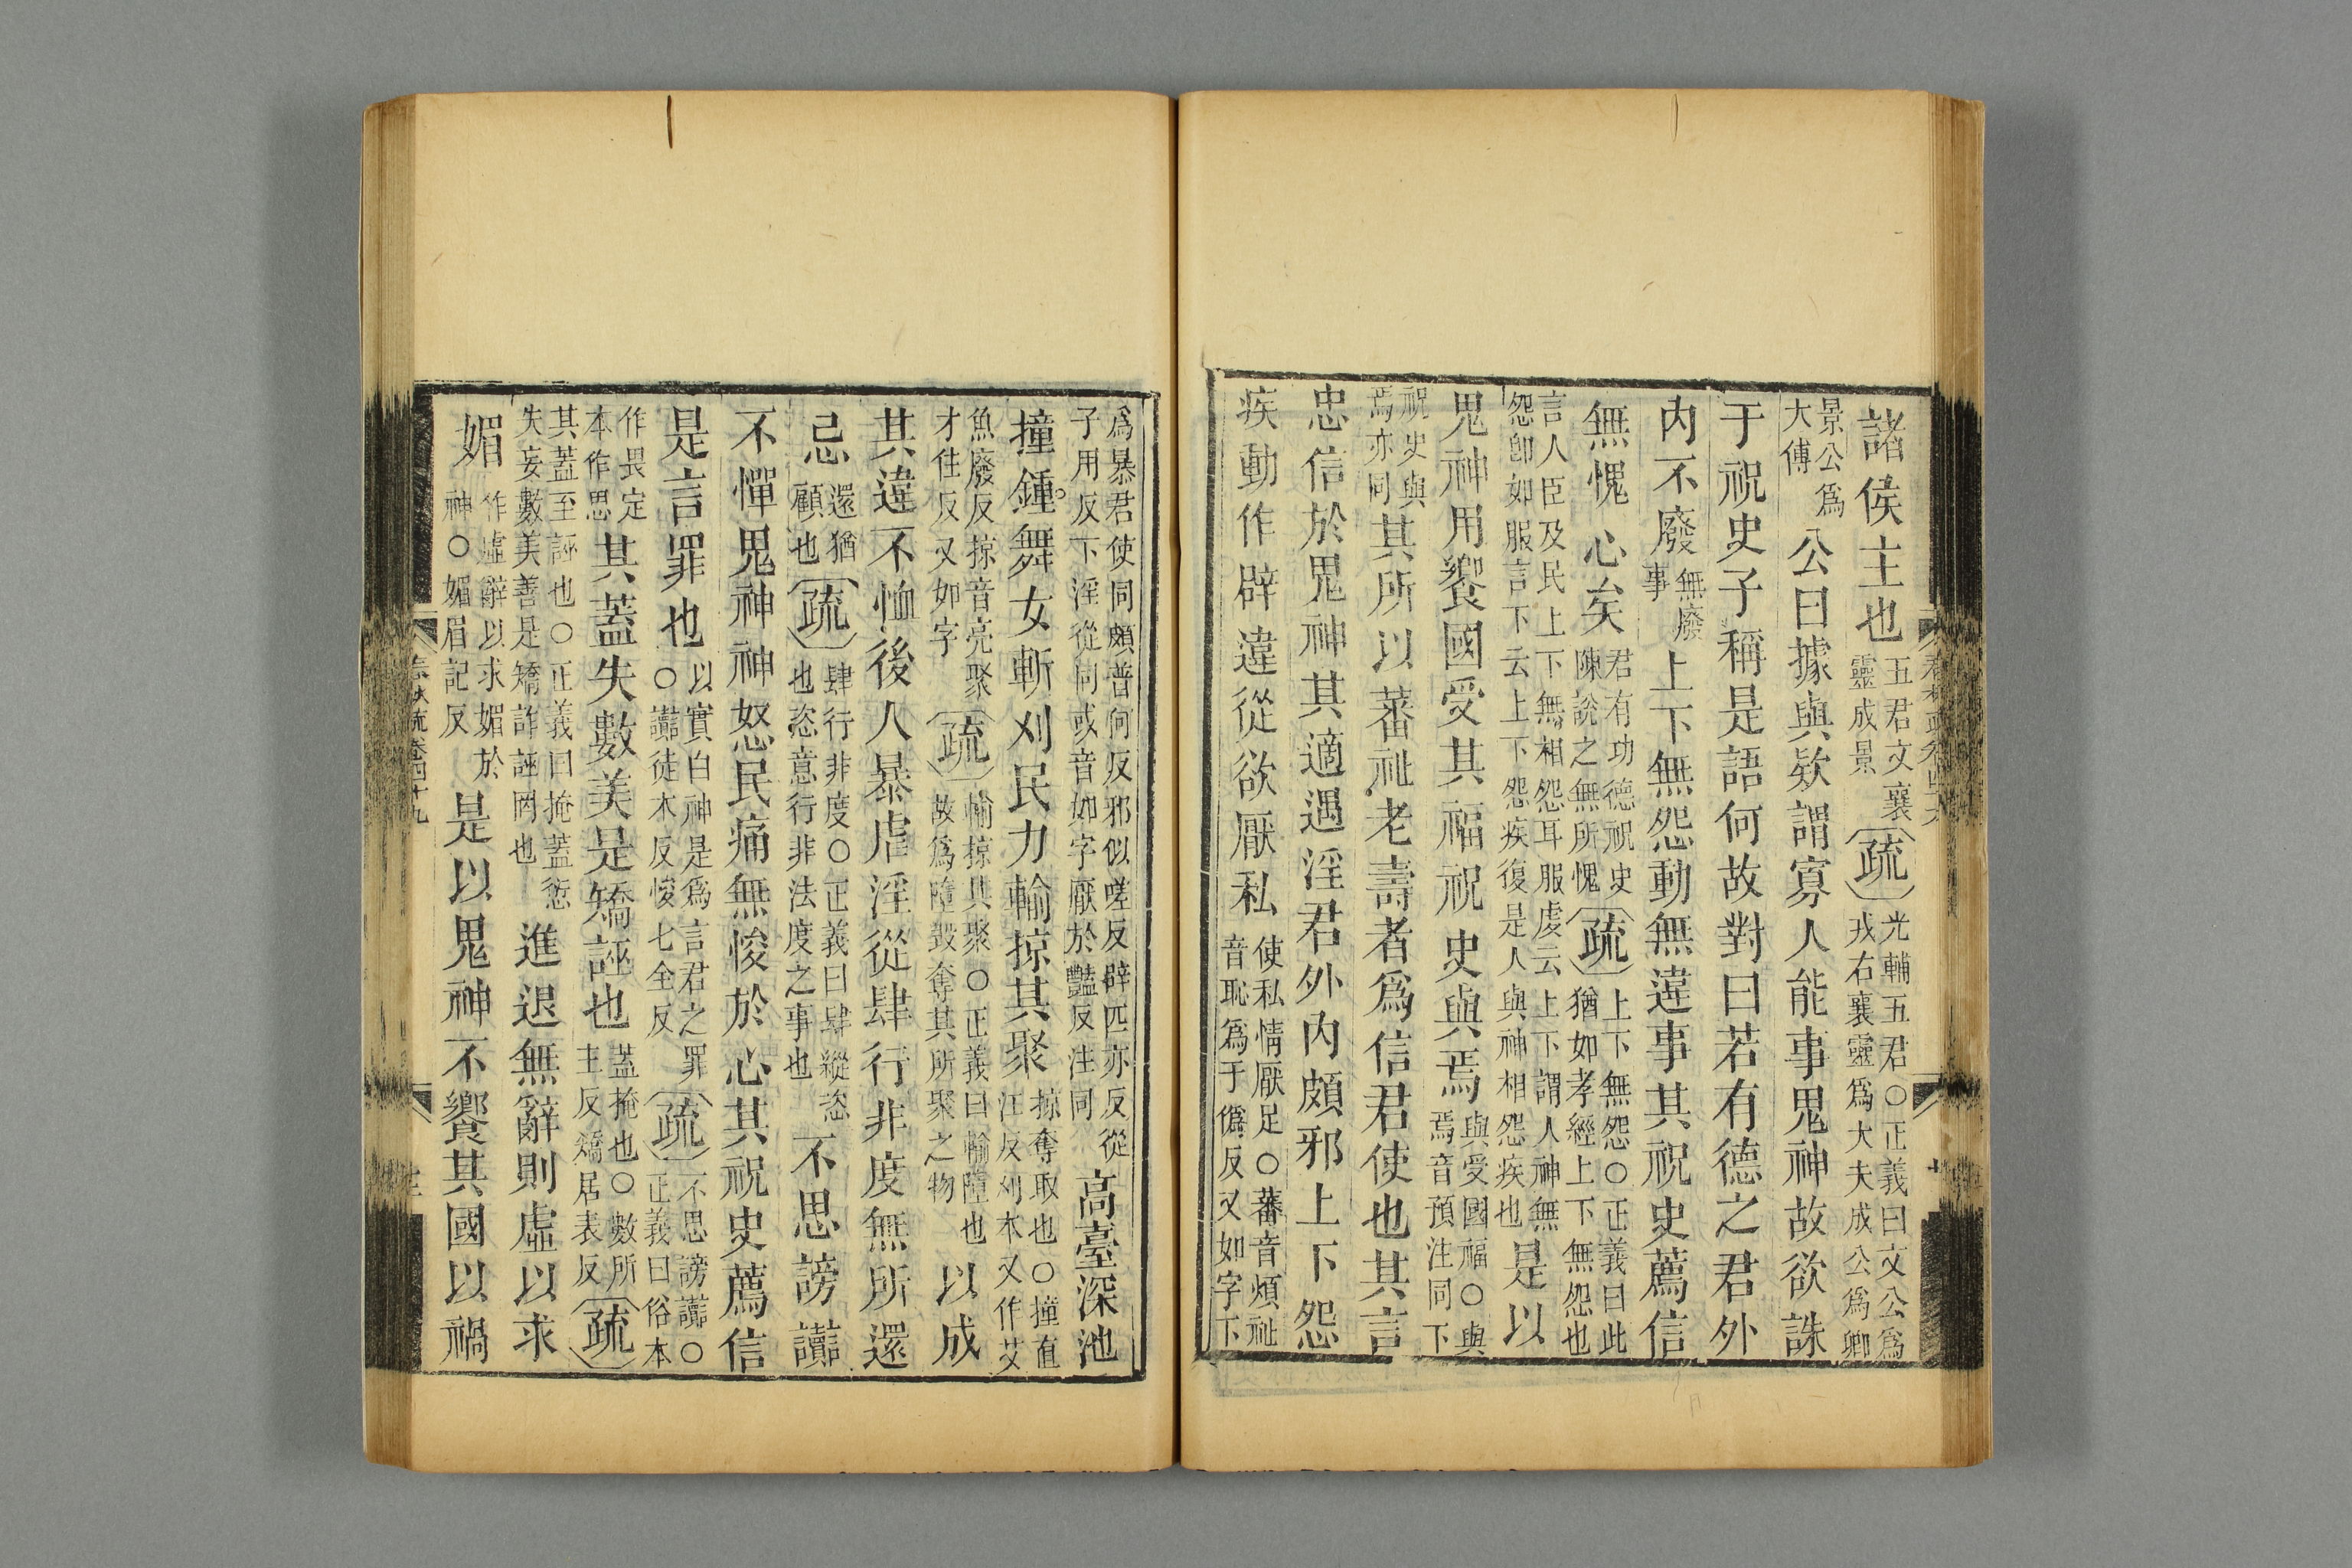 諸侯主也五君文襄靈成景疏光輔五君〇正義曰文公爲戎右襄靈爲大夫成公爲卿
景公爲大傅公曰據與欵謂寡人能事鬼神故欲誅
于祝史子稱是語何故對曰若有德之君外
内不廢無廢事上下無怨動無違事其祝史薦信
無愧心矣君有功德祝史陳說之無所愧疏上下無怨〇正義曰此猶如孝經上下無怨也
言人臣及民上下無相怨耳服虔云上下謂人神無怨卽如服言下云上下怨疾復是人與神相怨疾也是以
鬼神用饗國受其福祝史與焉與受國福〇與焉音預注同下
祝史與焉亦同其所以蕃祉老壽者爲信君使也其言
忠信於鬼神其適遇淫君外内頗邪上下怨
疾動作辟違從欲厭私使私情厭足〇蕃音煩祉音恥爲于僞反又如字下
爲暴君使同頗普何反邪似嗟反辟匹亦反從子用反下淫從同或音如字厭於豔反注同高臺深池
撞鍾舞女斬刈民力輸掠其聚掠奪取也〇撞直江反刈本又作艾
魚廢反掠音亮聚才住反又如字疏輸掠其聚〇正義曰輸墮也故爲墮毀奪其所聚之物以成
其違不恤後人暴虐淫從肆行非度無所還
忌還猶顧也疏肆行非度〇正義曰肆縱恣也恣意行非法度之事也不思謗讟
不憚鬼神神怒民痛無悛於心其祝史薦信
是言罪也以實白神是爲言君之罪〇讟徒木反悛七全反疏不思謗讟〇正義曰俗本
作畏定本作思其蓋失數美是矯誣也蓋掩也〇數所主反矯居表反疏
其蓋至誣也〇正義曰掩蓋愆失妄數美善是矯詐誣罔也進退無辭則虛以求
媚作虛辭以求媚於神〇媚眉記反是以鬼神不饗其國以禍